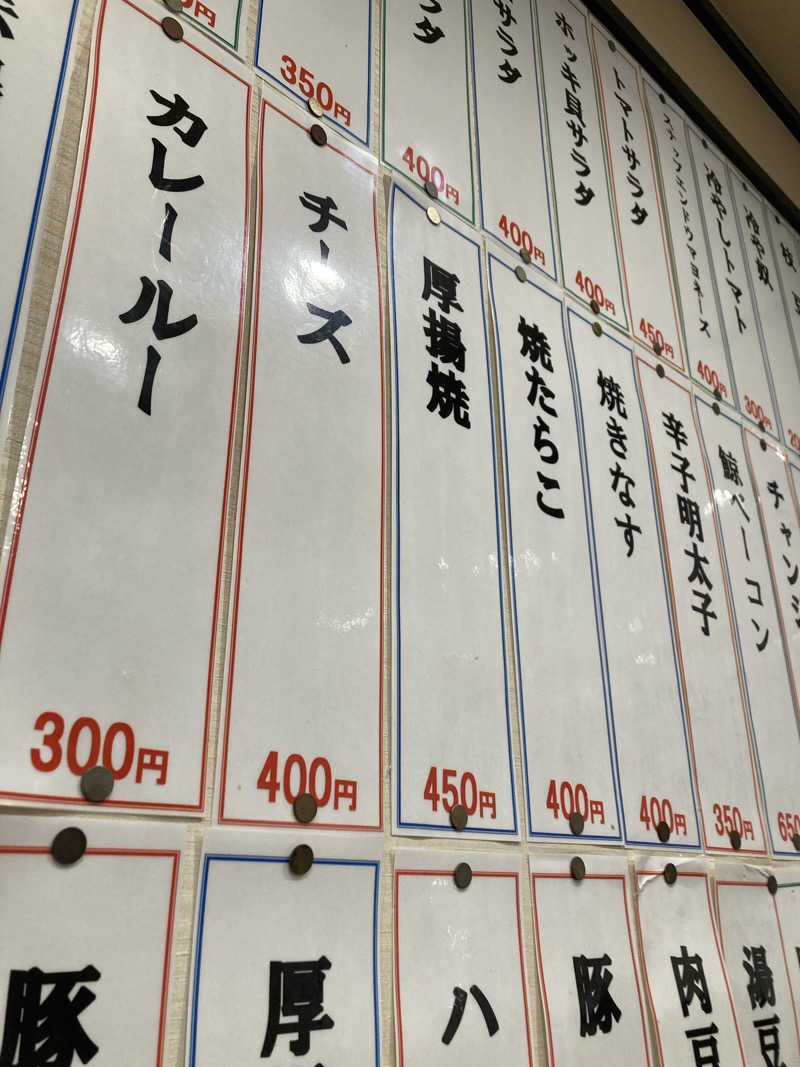 350円
ラダ
400円
サラダ
400円
ホッキ貝サラダ
400円
トマトサラダ
450円
スナップエンドウマヨネーズ
400円
冷やしトマト
300円
冷や奴
枝
カレールー
300円
チース
400円
厚揚焼
450円
焼たらこ
400円
焼きなす
400円
辛子明太子
350円
鯨ベーコン
650
チャンジ
豚
厚
ハ
豚
肉豆
湯豆